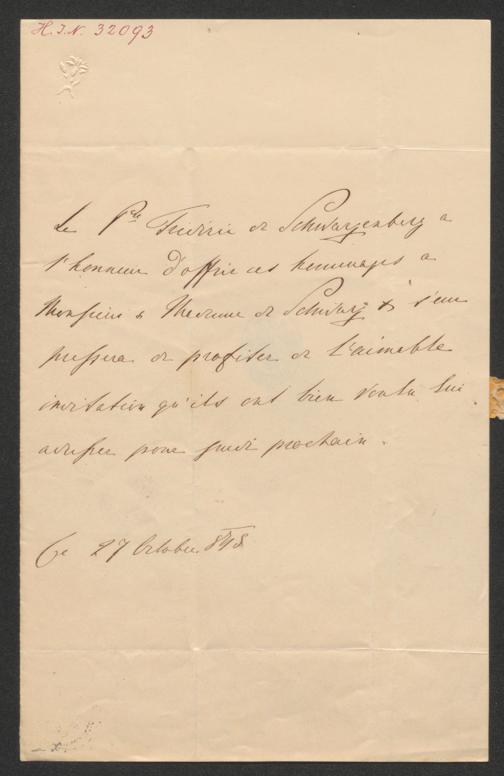 H. I. N. 32093
Le Pce Frédéric de Schwarzenberg a
l'honneur d'offrir ses hommages a
Monsieur & Madame de Schwarz & s'em
pressera de profiter de l'aimable
invitation qu'ils ont bien voulu lui
adresser pour jeudi prochain.
Ce 27 Octobre